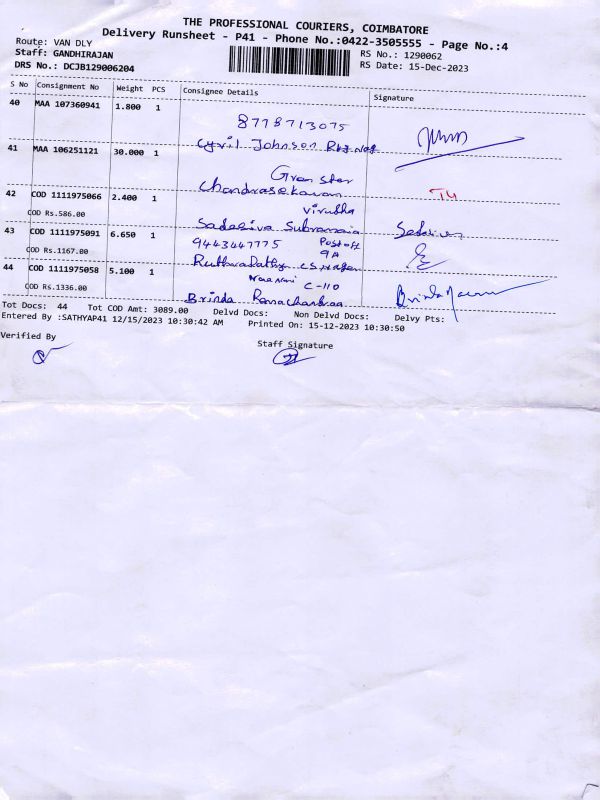 THE PROFESSIONAL COURIERS, COIMBATORE
Delivery Runsheet - P41 - Phone No.:0422-3505555 - Page No.:4
Route: VAN DLY RS No.: 1290062
Staff: GANDHIRAJAN RS Date: 15-Dec-2023
DRS No.: DCJB129006204
S No Consignment No Weight PCS Consignee Details Signature
40 MAA 107360941 1.800 1
8778713075
Cyril Johnson
41 MAA 106251121 30.000 1
Gran star
Chandrasekaran
42 COD 1111975066 2.400 1
Virudha
COD Rs.586.00
Sadasiva Subramania
43 COD 1111975091 6.650 1
9443447775 Post off
9A
COD Rs.1167.00
44 COD 1111975058 5.100 1
C-110
COD Rs.1336.00
Brinda Ramachandran
Tot Docs: 44 Tot COD Amt: 3089.00 Delvd Docs: Non Delvd Docs: Delvy Pts:
Entered By :SATHYAP41 12/15/2023 10:30:42 AM Printed On: 15-12-2023 10:30:50
Verified By
Staff Signature